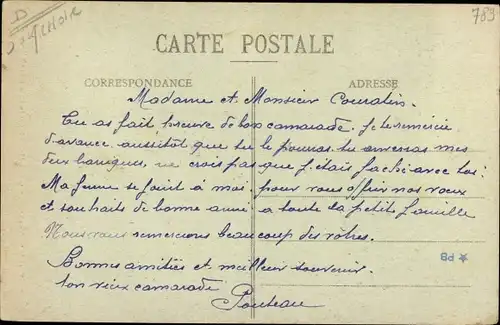 D
789
CARTE POSTALE
CORRESPONDANCE
ADRESSE
Madame et Monsieur Couratin.
Tu as fait preuve de bon camarade. je te remercie
d'avance aussitôt que tu le pourras tu enverras mes
deux banques, ne crois pas que j'étais faché avec toi:
Ma femme se joint à moi pour vous offrir nos vœux
et souhaits de bonne anné a toute la petite famille
Nous vous remercions beaucoup des vôtres.
Bonnes amitiés et meilleur souvenir.
ton vieux camarade
Pouteau
* PB